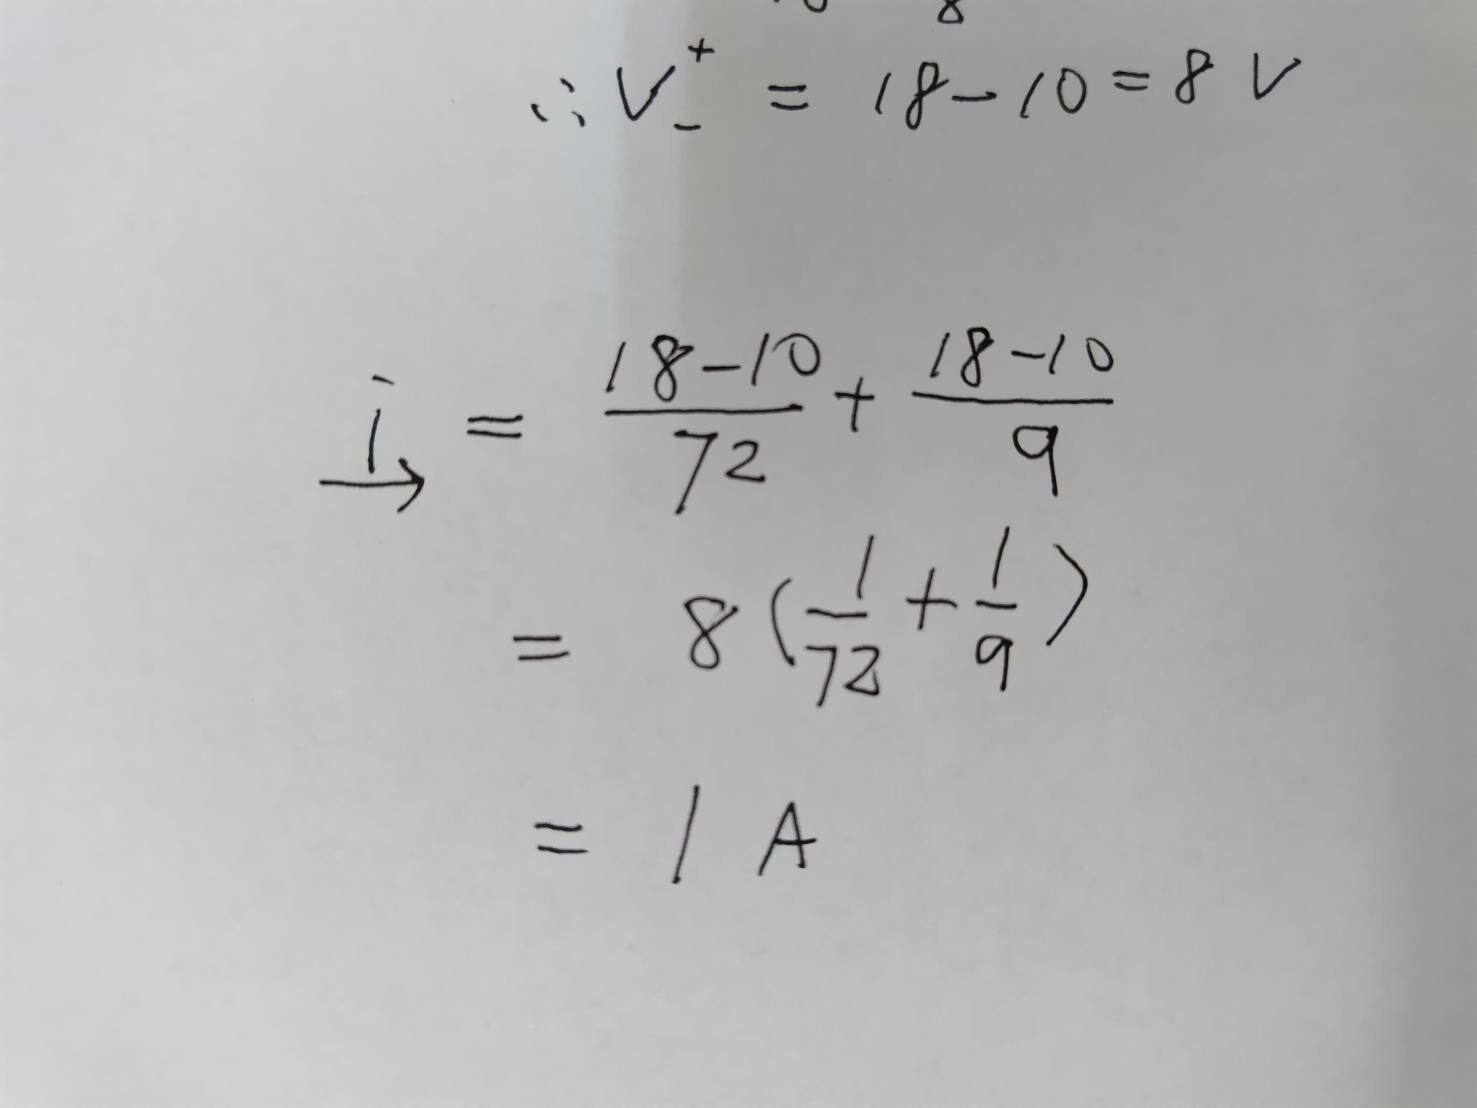 ∴ V⁺₋ = 18-10 = 8 V
i→ = 18-10/72 + 18-10/9
= 8 (1/72 + 1/9)
= 1 A